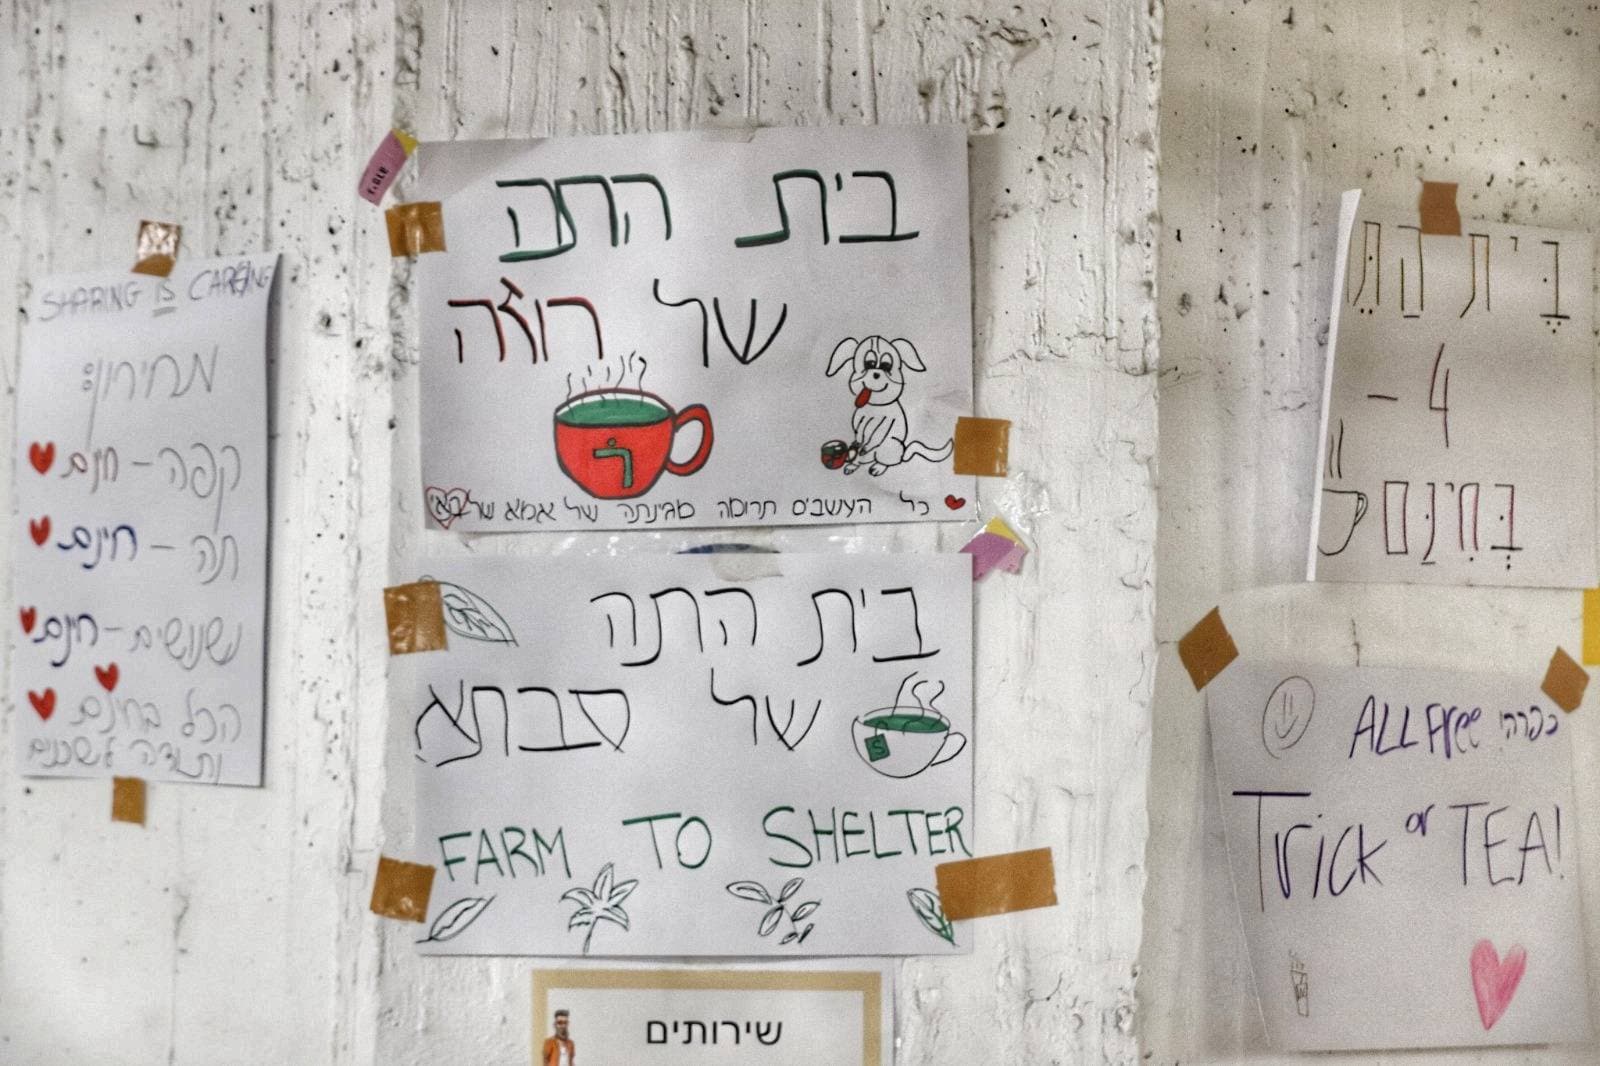 SHARING IS CARING
מחירון:
קפה - חינם
תה - חינם
נשנושים - חינם
הכל בחינם
ותודה לשכנים
בית התה
של רוזה
ר
כל העשבים תרומה מגינתה של אמא של
בית התה
של סבתא
S
FARM TO SHELTER
שירותים
בֵּית הַתֵּ
4 -
בְּחִינָּם
ALL Free כפרה!
Trick or TEA!